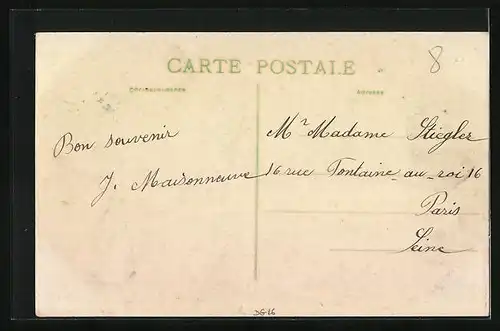 8
CARTE POSTALE
CORRESPONDANCE
ADRESSE
Bon souvenir
J. Maisonneuve
Mr Madame Stiegler
16 rue Fontaine-au-roi 16
Paris
Seine